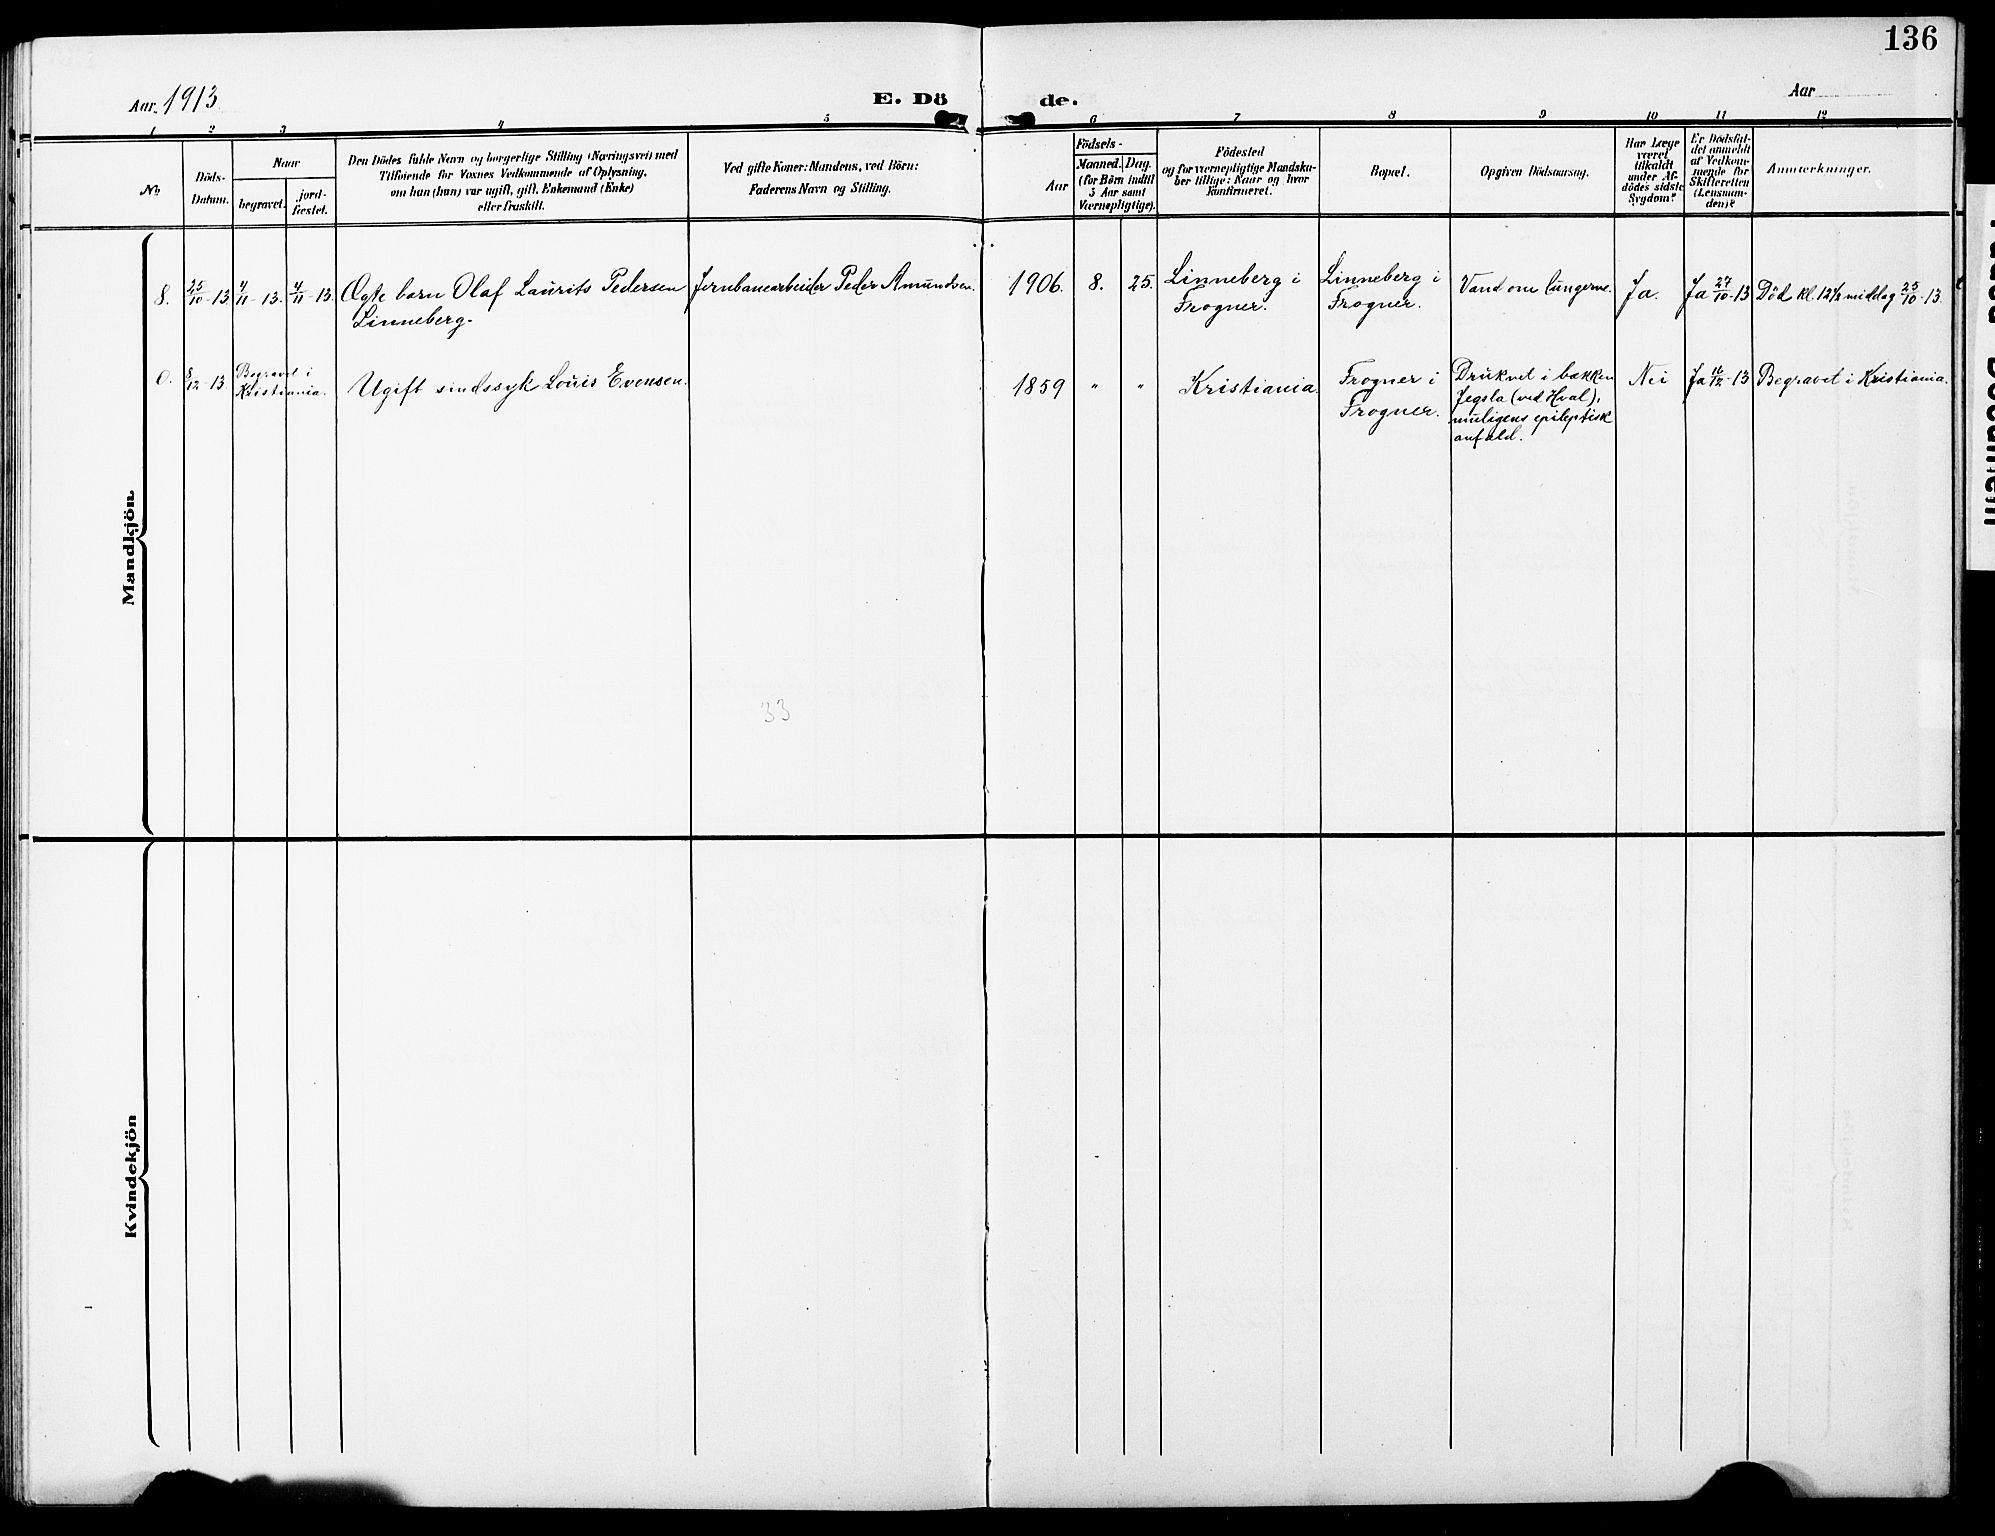 136
Aar 1913
E. Döde.
Aar
1 2 3 4 5 6 7 8 9 10 11 12
No
Döds-
Datum.
Naar
begravet.
jord-
fæstet.
Den Dödes fulde Navn og borgerlige Stilling (Næringsvei) med
Tilföiende for Voxnes Vedkommende af Oplysning,
om han (hun) var ugift, gift, Enkemand (Enke)
eller fraskilt.
Ved gifte Koner: Mandens, ved Börn:
Faderens Navn og Stilling.
Födsels-
Aar
Maaned. Dag.
(for Börn indtil
5 Aar samt
Værnepligtige).
Födested
og for værnepligtige Mandska-
ber tillige: Naar og hvor
Konfirmeret.
Bopæl.
Opgiven Dödsaarsag.
Har Læge
været
tilkaldt
under Af-
dödes sidste
Sygdom?
Er Dödsfal-
det anmeldt
af Vedkom-
mende for
Skifteretten
(Lensman-
den)?
Anmærkninger.
Mandkjön.
8. 25/10-13 4/11-13. 4/11-13. Ægte barn Olaf Laurits Pedersen Jernbanearbeider Peder Amundsen. 1906. 8. 25. Linneberg i Linneberg i Vand om lungerne. Ja. Ja 27/10-13 Død kl. 12½ middag 25/10-13.
Linneberg. Frogner. Frogner.
0. 8/12-13 Begravet i Ugift sindssyk Louis Evensen. 1859 " " Kristiania. Frogner i Druknet i bækken Nei Ja 11/12-13 Begravet i Kristiania.
Kristiania. Frogner. Jegsla (ved Hval),
muligens epileptisk
anfald.
33
Kvindekjön